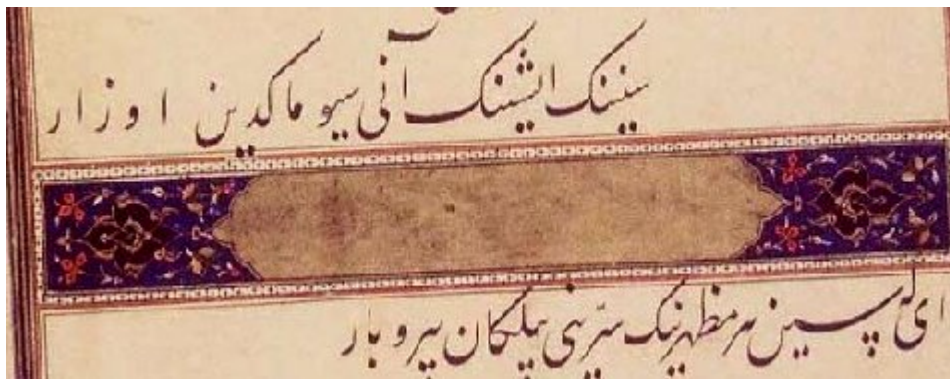 سیننک ایشینک آنی سیو ماکدین اوزار
ای که سین هر مظهرنینک سرینی بیلکان بیر و بار